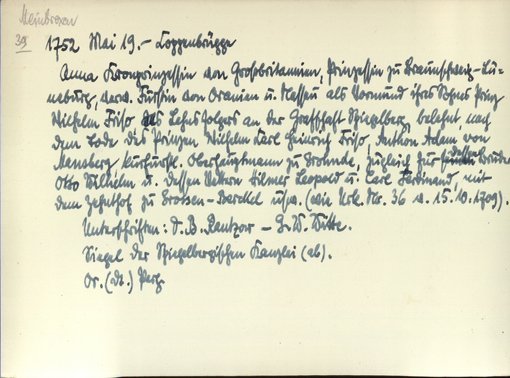 Meinbrexen
39
1752 Mai 19.- Coppenbrügge
Anna Kronprinzessin von Großbritannien, Prinzessin zu Braunschweig-Lü-
neburg, verw. Fürstin von Oranien u. Nassau als Vormund ihres Sohnes Prinz
Wilhelm Friso als Lehnsfolgers an der Grafschaft Spiegelberg, belehnt nach
dem Tode des Prinzen Wilhelm Karl Heinrich Friso, Anthon Adam von
Mansberg kurfürstl. Oberhauptmann zu Grohnde, zugleich für dessen Bruder
Otto Wilhelm u. dessen Vettern Hilmer Leopold u. Carl Ferdinand, mit
dem Zehnthof zu Großen-Berckel usw. (wie Urk. Nr. 36 v. 15.10.1709).
Unterschriften: D.B. Rantzow - G.W. Witte.
Siegel der Spiegelbergischen Kanzlei (ab).
Or. (dt.) Perg.